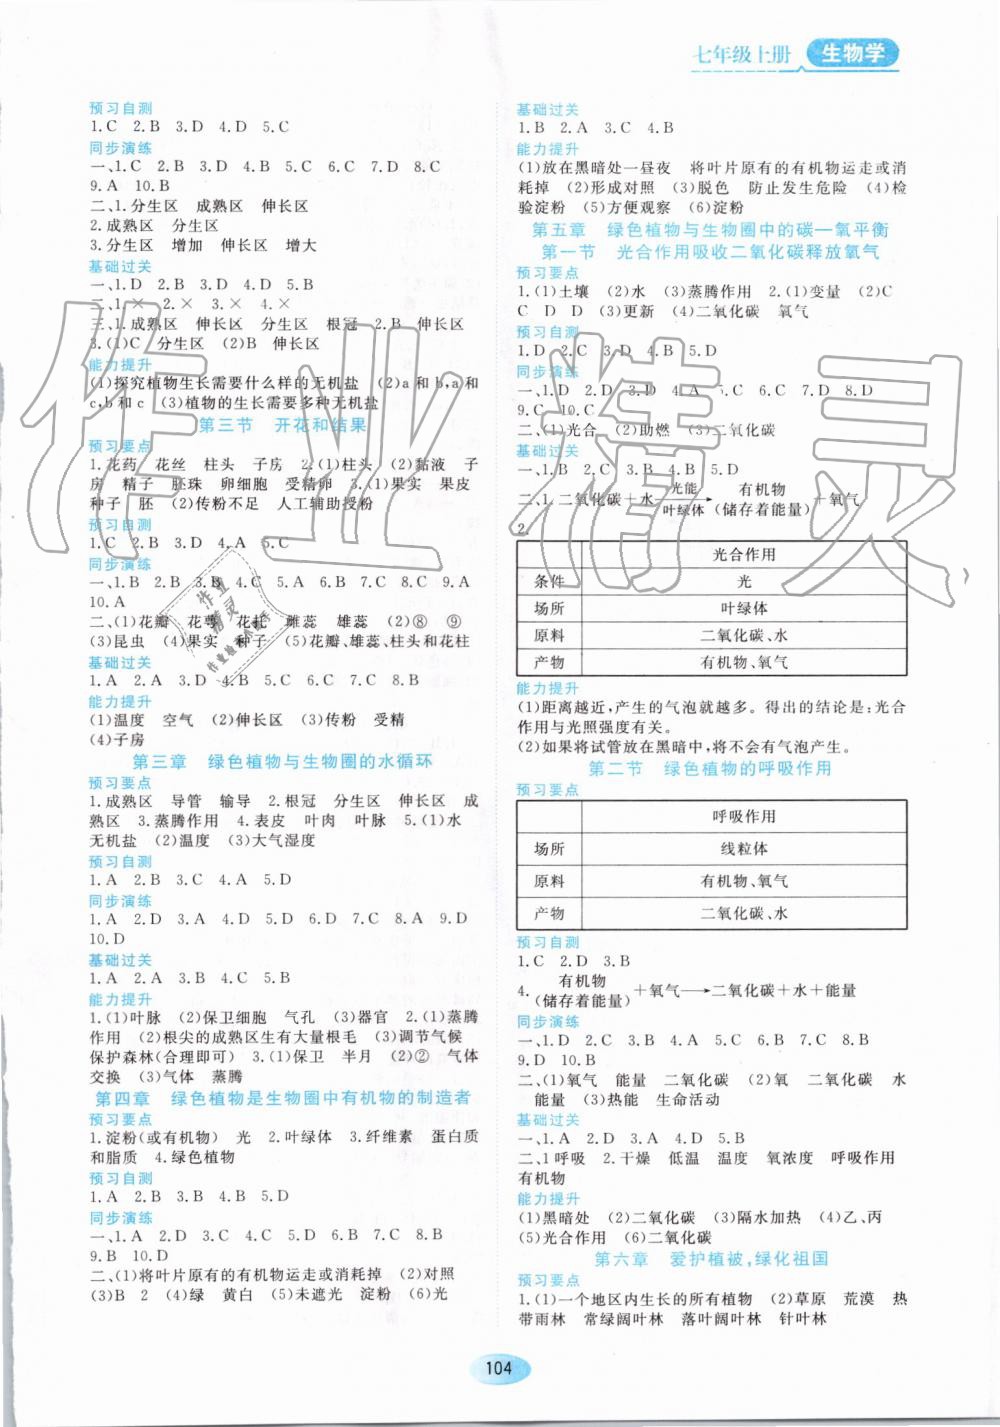 七年级上册 生物学
预习自测
1.C 2.B 3.D 4.D 5.C
同步演练
一、1.C 2.B 3.D 4.B 5.C 6.C 7.D 8.C
9.A 10.B
二、1.分生区 成熟区 伸长区
2.成熟区 分生区
3.分生区 增加 伸长区 增大
基础过关
一、1.D 2.A 3.C 4.D 5.D
二、1.× 2.× 3.× 4.×
三、1.成熟区 伸长区 分生区 根冠 2.B 伸长区
3.(1)C 分生区 (2)B 伸长区
能力提升
(1)探究植物生长需要什么样的无机盐 (2)a和b,a和
c,b和c (3)植物的生长需要多种无机盐
第三节 开花和结果
预习要点
1.花药 花丝 柱头 子房 2.(1)柱头 (2)黏液 子
房 精子 胚珠 卵细胞 受精卵 3.(1)果实 果皮
种子 胚 (2)传粉不足 人工辅助授粉
预习自测
1.C 2.B 3.D 4.A 5.C
同步演练
一、1.B 2.B 3.B 4.C 5.A 6.B 7.C 8.C 9.A
10.A
二、(1)花瓣 花萼 花托 雌蕊 雄蕊 (2)⑧ ⑨
(3)昆虫 (4)果实 种子 (5)花瓣、雄蕊、柱头和花柱
基础过关
1.A 2.A 3.D 4.B 5.C 6.C 7.B 8.B
能力提升
(1)温度 空气 (2)伸长区 (3)传粉 受精
(4)子房
第三章 绿色植物与生物圈的水循环
预习要点
1.成熟区 导管 输导 2.根冠 分生区 伸长区 成
熟区 3.蒸腾作用 4.表皮 叶肉 叶脉 5.(1)水
无机盐 (2)温度 (3)大气湿度
预习自测
1.A 2.B 3.C 4.D 5.D
同步演练
1.A 2.D 3.A 4.D 5.D 6.D 7.C 8.A 9.D
10.D
基础过关
1.A 2.A 3.B 4.C 5.B
能力提升
1.(1)叶脉 (2)保卫细胞 气孔 (3)器官 2.(1)蒸腾
作用 (2)根尖的成熟区生有大量根毛 (3)调节气候
保护森林(合理即可) 3.(1)保卫 半月 (2)② 气体
交换 (3)气体 蒸腾
第四章 绿色植物是生物圈中有机物的制造者
预习要点
1.淀粉(或有机物) 光 2.叶绿体 3.纤维素 蛋白质
和脂质 4.绿色植物
预习自测
1.A 2.B 3.B 4.D 5.D
同步演练
一、1.A 2.D 3.C 4.C 5.D 6.D 7.C 8.B
9.B 10.D
二、(1)将叶片原有的有机物运走或消耗掉 (2)对照
(3)B 2 (4)绿 黄白 (5)未遮光 淀粉 (6)光
基础过关
1.B 2.A 3.C 4.B
能力提升
(1)放在黑暗处一昼夜 将叶片原有的有机物运走或消
耗掉 (2)形成对照 (3)脱色 防止发生危险 (4)检
验淀粉 (5)方便观察 (6)淀粉
第五章 绿色植物与生物圈中的碳—氧平衡
第一节 光合作用吸收二氧化碳释放氧气
预习要点
1.(1)土壤 (2)水 (3)蒸腾作用 2.(1)变量 (2)C
C D D (3)更新 (4)二氧化碳 氧气
预习自测
1.D 2.C 3.B 4.B 5.D
同步演练
一、1.D 2.D 3.D 4.A 5.C 6.D 7.D 8.D
9.C 10.C
二、(1)光合 (2)助燃 (3)二氧化碳
基础过关
一、1.B 2.C 3.B 4.B 5.D
二、1.二氧化碳+水 光能→叶绿体 有机物(储存着能量)+氧气
2.
光合作用
条件 光
场所 叶绿体
原料 二氧化碳、水
产物 有机物、氧气
能力提升
(1)距离越近,产生的气泡就越多。得出的结论是:光合
作用与光照强度有关。
(2)如果将试管放在黑暗中,将不会有气泡产生。
第二节 绿色植物的呼吸作用
预习要点
呼吸作用
场所 线粒体
原料 有机物、氧气
产物 二氧化碳、水
预习自测
1.C 2.D 3.B
4. 有机物(储存着能量)+氧气→二氧化碳+水+能量
同步演练
一、1.B 2.B 3.A 4.D 5.C 6.B 7.C 8.B
9.D 10.B
二、(1)氧气 能量 二氧化碳 (2)氧 二氧化碳 水
能量 (3)热能 生命活动
基础过关
一、1.A 2.D 3.A 4.D 5.B
二、1呼吸 2.干燥 低温 温度 氧浓度 呼吸作用
有机物
能力提升
(1)黑暗处 (2)二氧化碳 (3)隔水加热 (4)乙、丙
(5)光合作用 (6)二氧化碳
第六章 爱护植被,绿化祖国
预习要点
1.(1)一个地区内生长的所有植物 (2)草原 荒漠 热
带雨林 常绿阔叶林 落叶阔叶林 针叶林
104
作业精灵